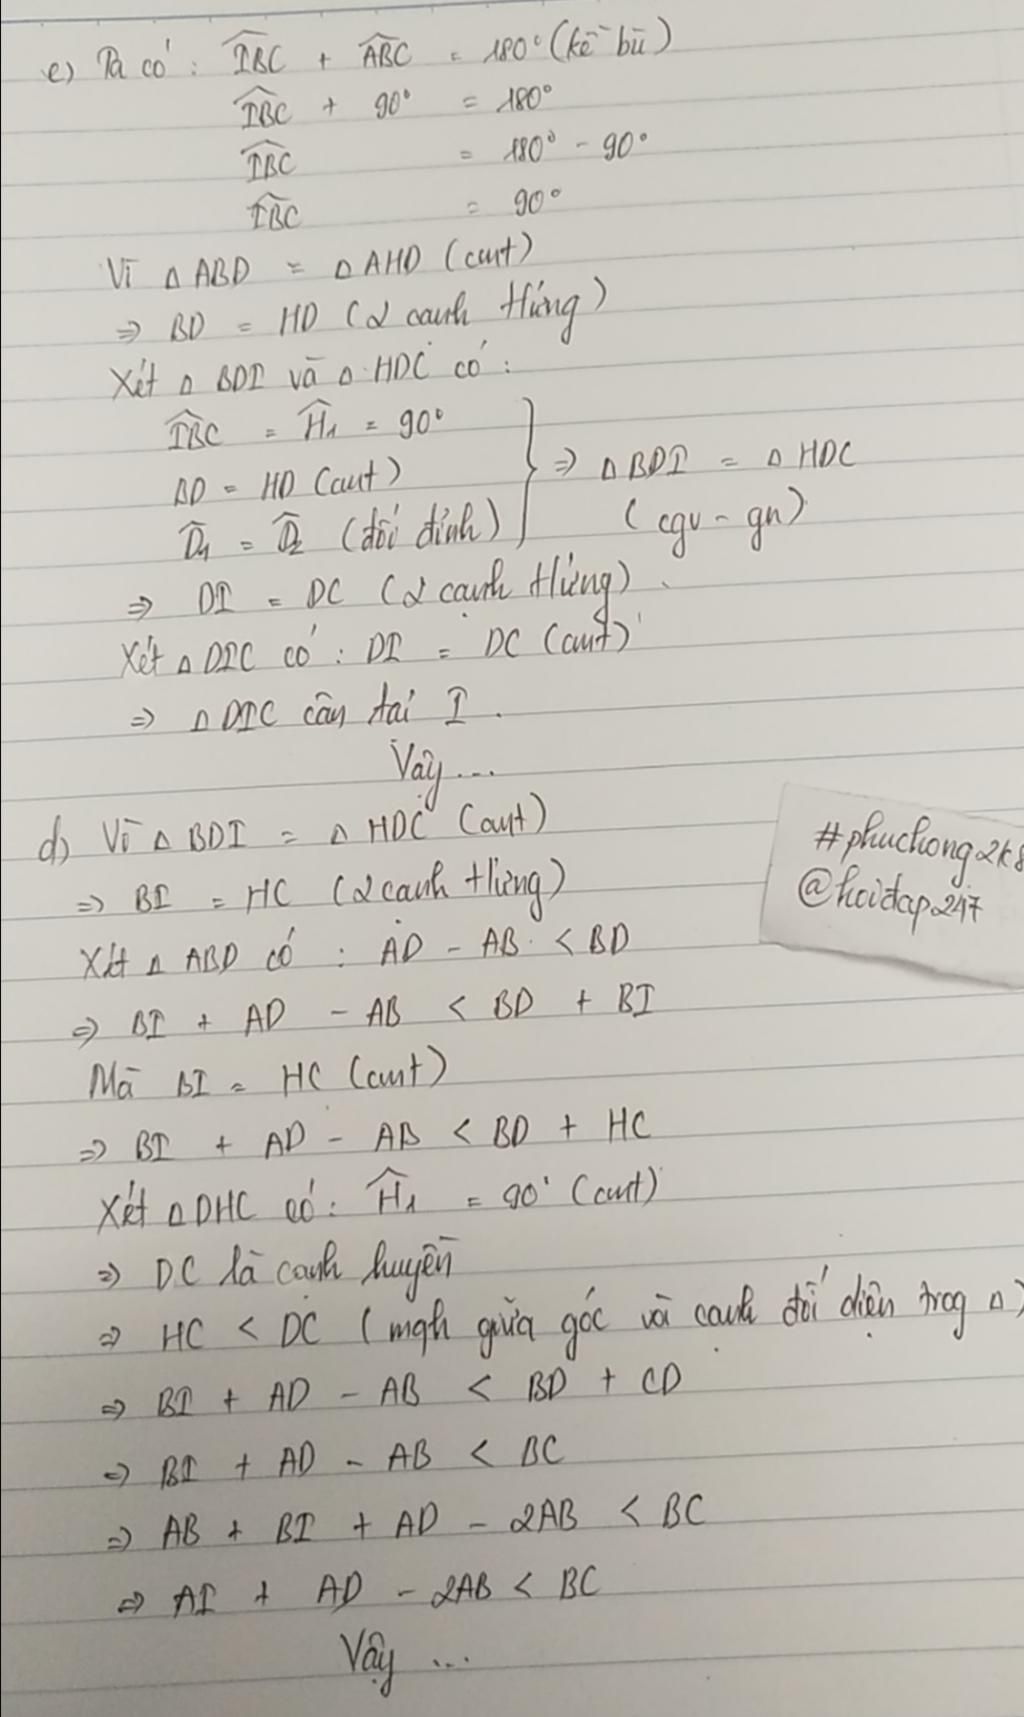 c) Ta có : IBC + ABC = 180° (kề bù)
IBC + 90° = 180°
IBC = 180° - 90°
IBC = 90°
Vì △ ABD = △ AHD (cmt)
=> BD = HD (2 cạnh tứng)
Xét △ BDI và △ HDC có :
IBC = H1 = 90°
BD = HD (cmt)
D1 = D2 (đối đỉnh)
=> △ BDI = △ HDC
(cgv - gn)
=> DI = DC (2 cạnh tứng)
Xét △ DIC có : DI = DC (cmt)
=> △ DIC cân tại I.
Vậy ...
d) Vì △ BDI = △ HDC (cmt)
=> BI = HC (2 cạnh tứng)
Xét △ ABD có : AD - AB < BD
=> BI + AD - AB < BD + BI
Mà BI = HC (cmt)
=> BI + AD - AB < BD + HC
Xét △ DHC có : H1 = 90° (cmt)
=> DC là cạnh huyền
=> HC < DC (mqh giữa góc và cạnh đối diện trog △)
=> BI + AD - AB < BD + CD
=> BI + AD - AB < BC
=> AB + BI + AD - 2AB < BC
=> AI + AD - 2AB < BC
Vậy ...
#phuchong2k8
@hoidap247